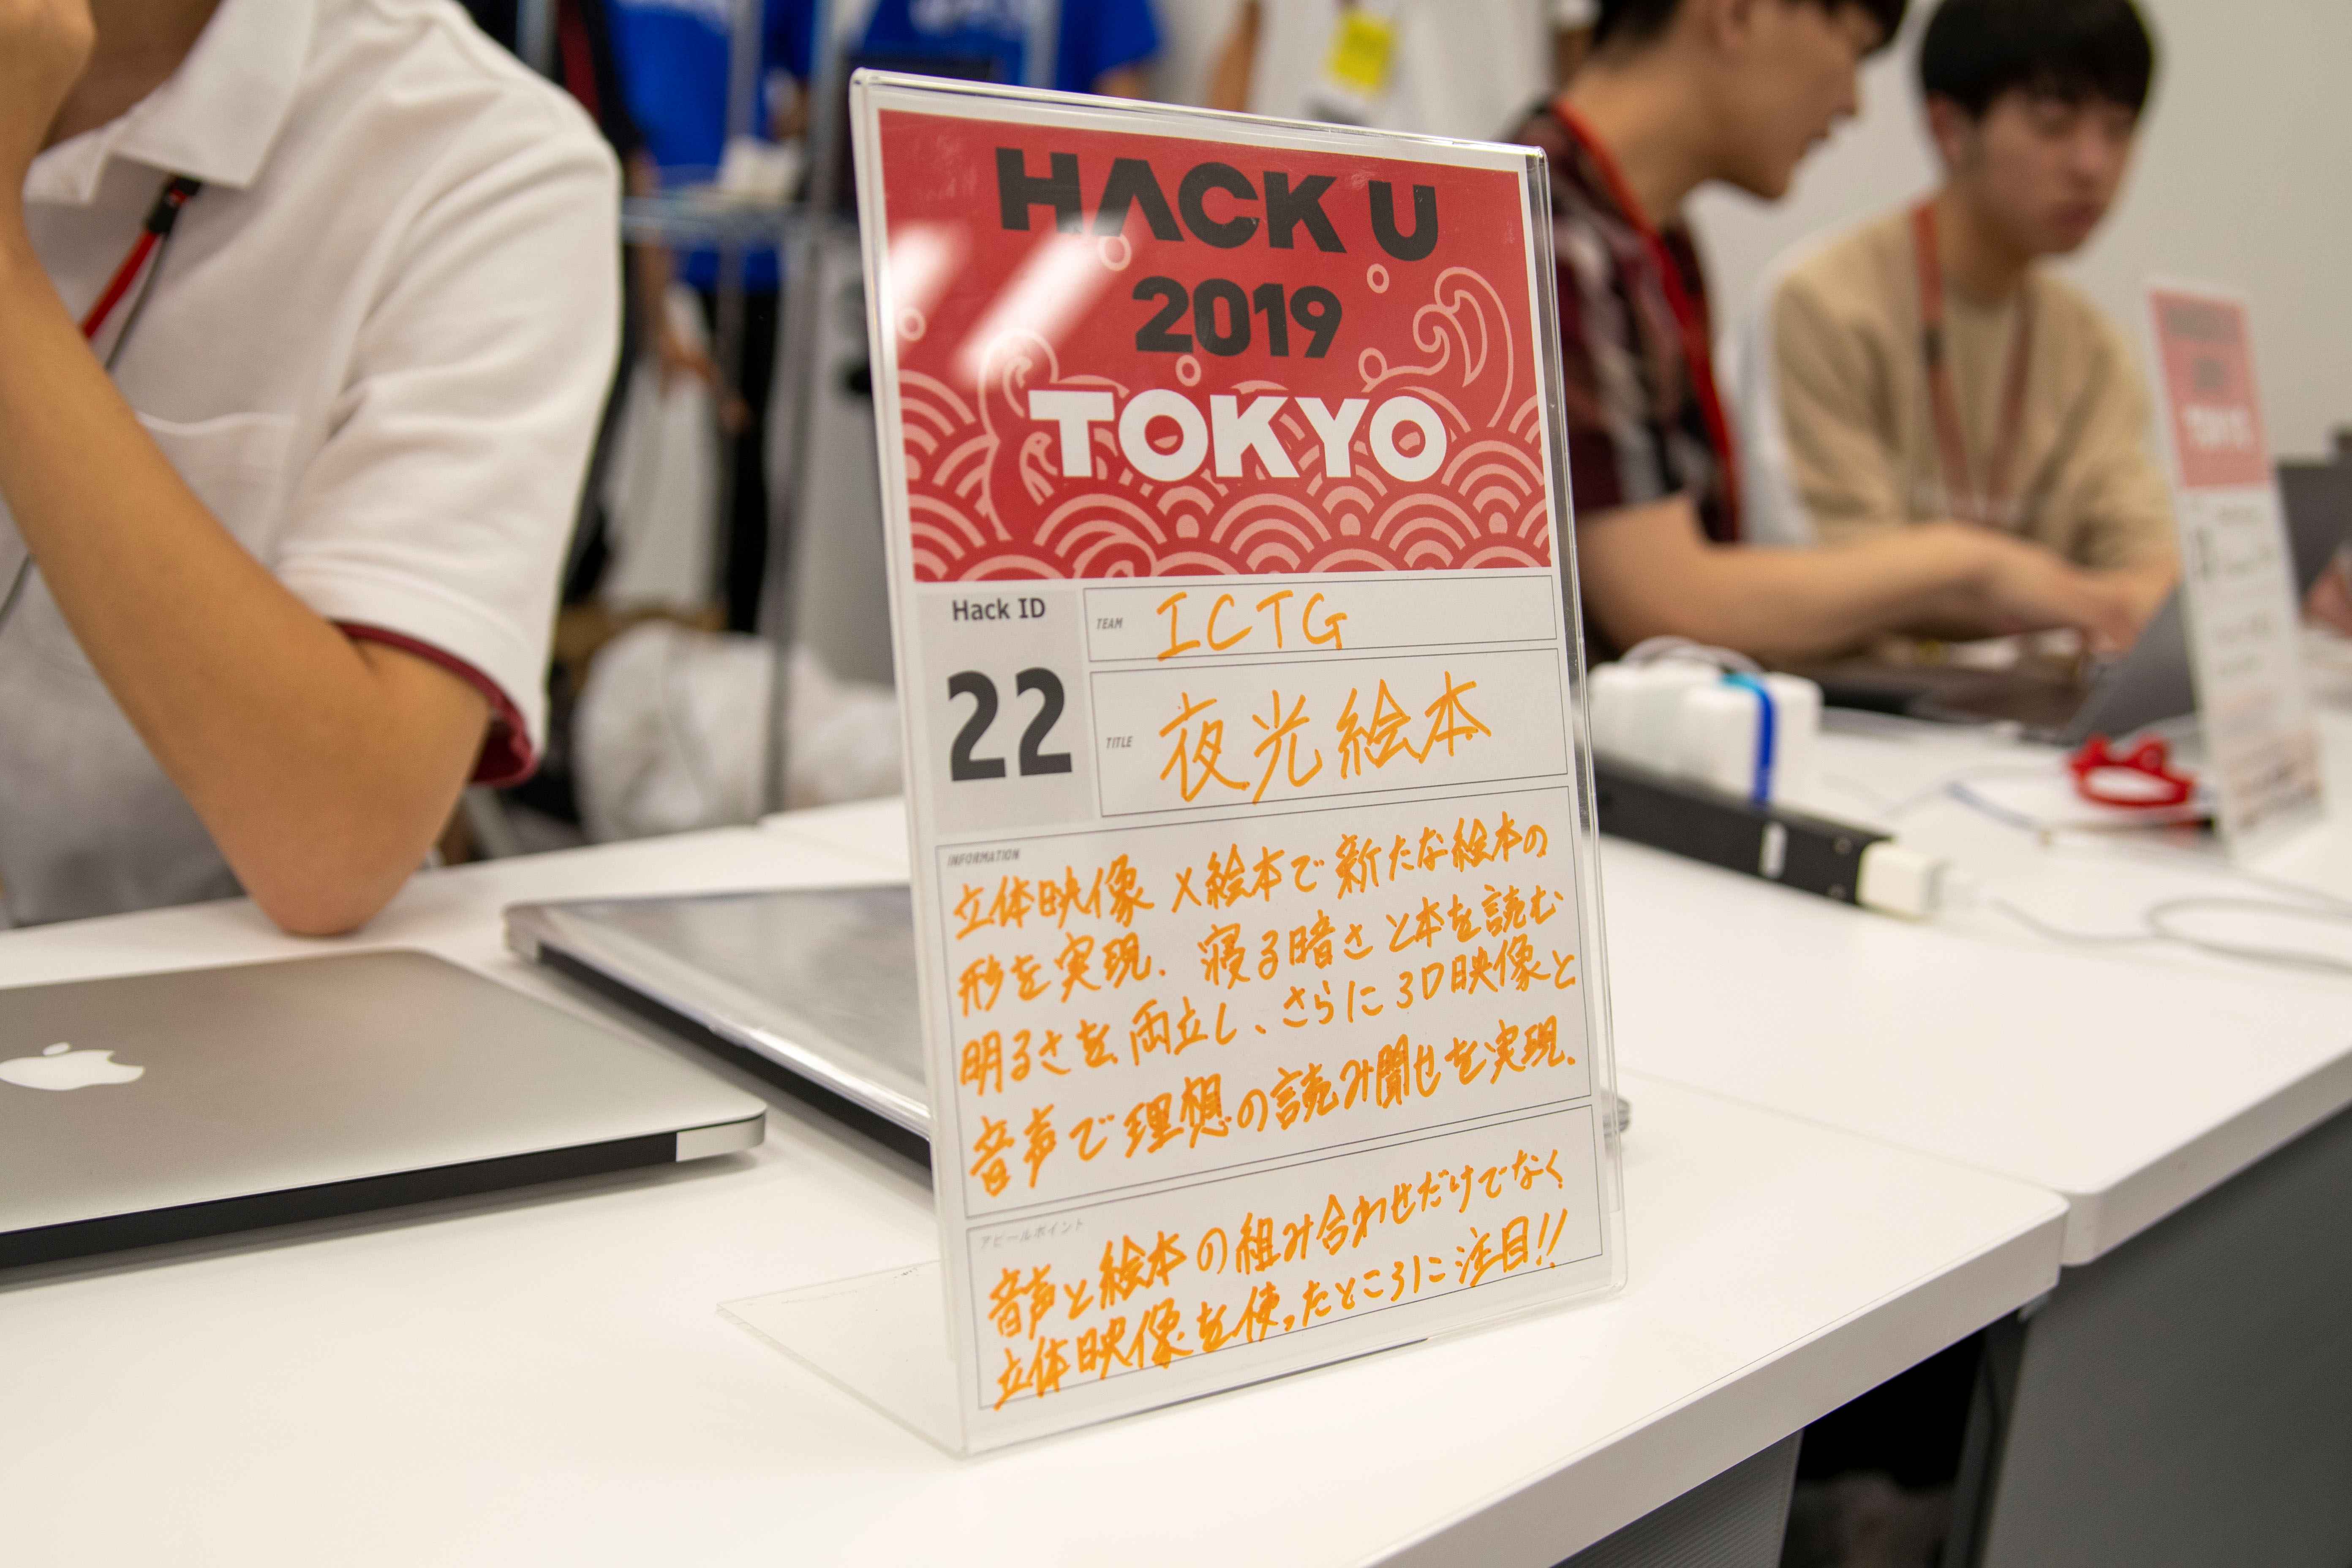 HACK U
2019
TOKYO
Hack ID
22
TEAM
ICTG
TITLE
夜光絵本
INFORMATION
立体映像×絵本で新たな絵本の
形を実現. 寝る暗さと本を読む
明るさを両立し、さらに3D映像と
音声で理想の読み聞せを実現.
アピールポイント
音声と絵本の組み合わせだけでなく
立体映像を使ったところに注目!!